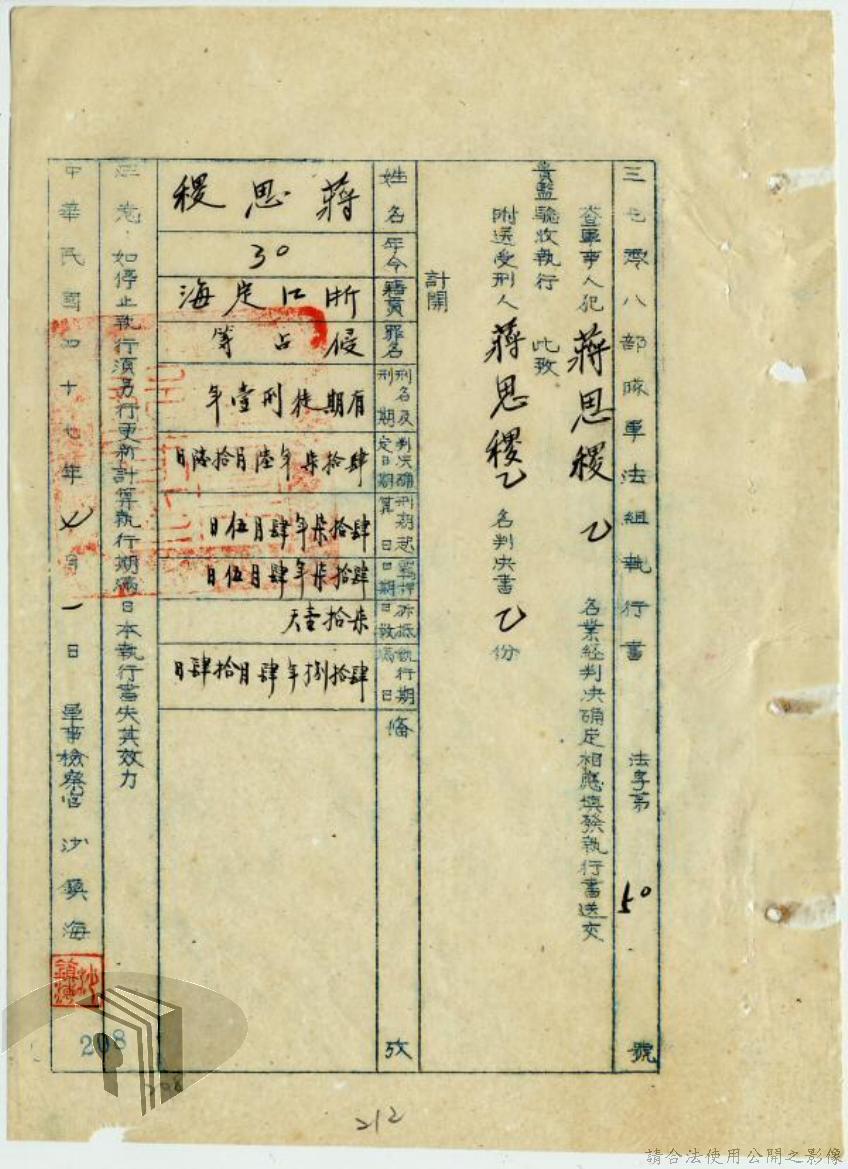 三七零八部隊軍法組執行書 法字第50號
查軍事人犯蔣思稷乙名業經判決确定相應填發執行書送交
貴監驗收執行 此致
附送受刑人蔣思稷乙名判決書乙份
計開
姓名 蔣思稷
年令 30
籍貫 浙江定海
罪名 侵占等
刑名及刑期 有期徒刑壹年
判決确定日期 肆拾柒年陸月拾陸日
刑期起算日 肆拾柒年肆月伍日
羈押日期 肆拾柒年肆月伍日
折抵日数 柒拾壹天
執行期滿日 肆拾捌年肆月拾肆日
備攷
注意：如停止執行須另行更新計算執行期滿日本執行書失其效力
中華民國四十七年七月一日 軍事檢察官 沙鎮海
208
212
請合法使用公開之影像